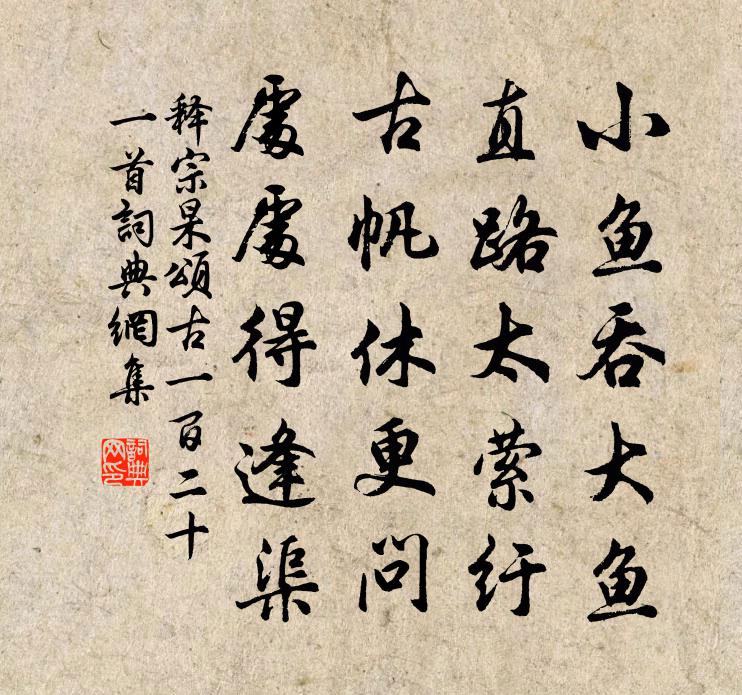 小鱼吞大鱼
直路太萦纡
古帆休更问
處處得逢渠
释宗杲頌古一百二十
一首詞典網集
詞典
网印